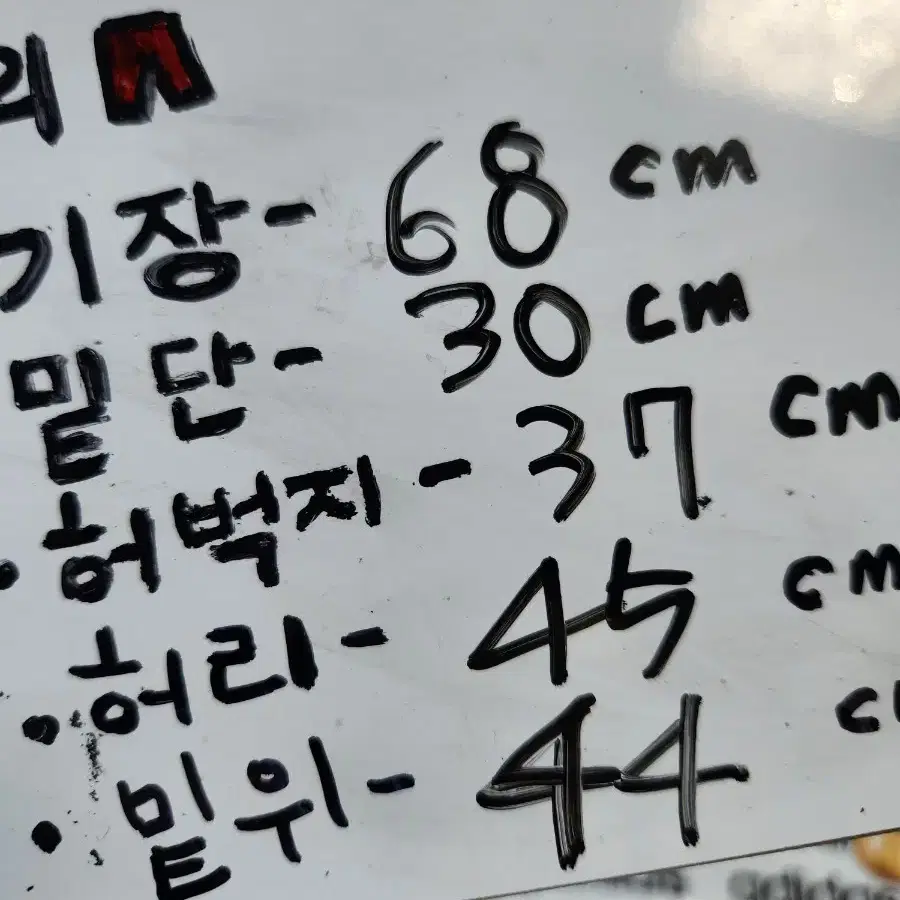 의
기장- 68 cm
밑단- 30 cm
·허벅지- 37 cm
·허리- 45 cm
·밑위- 44